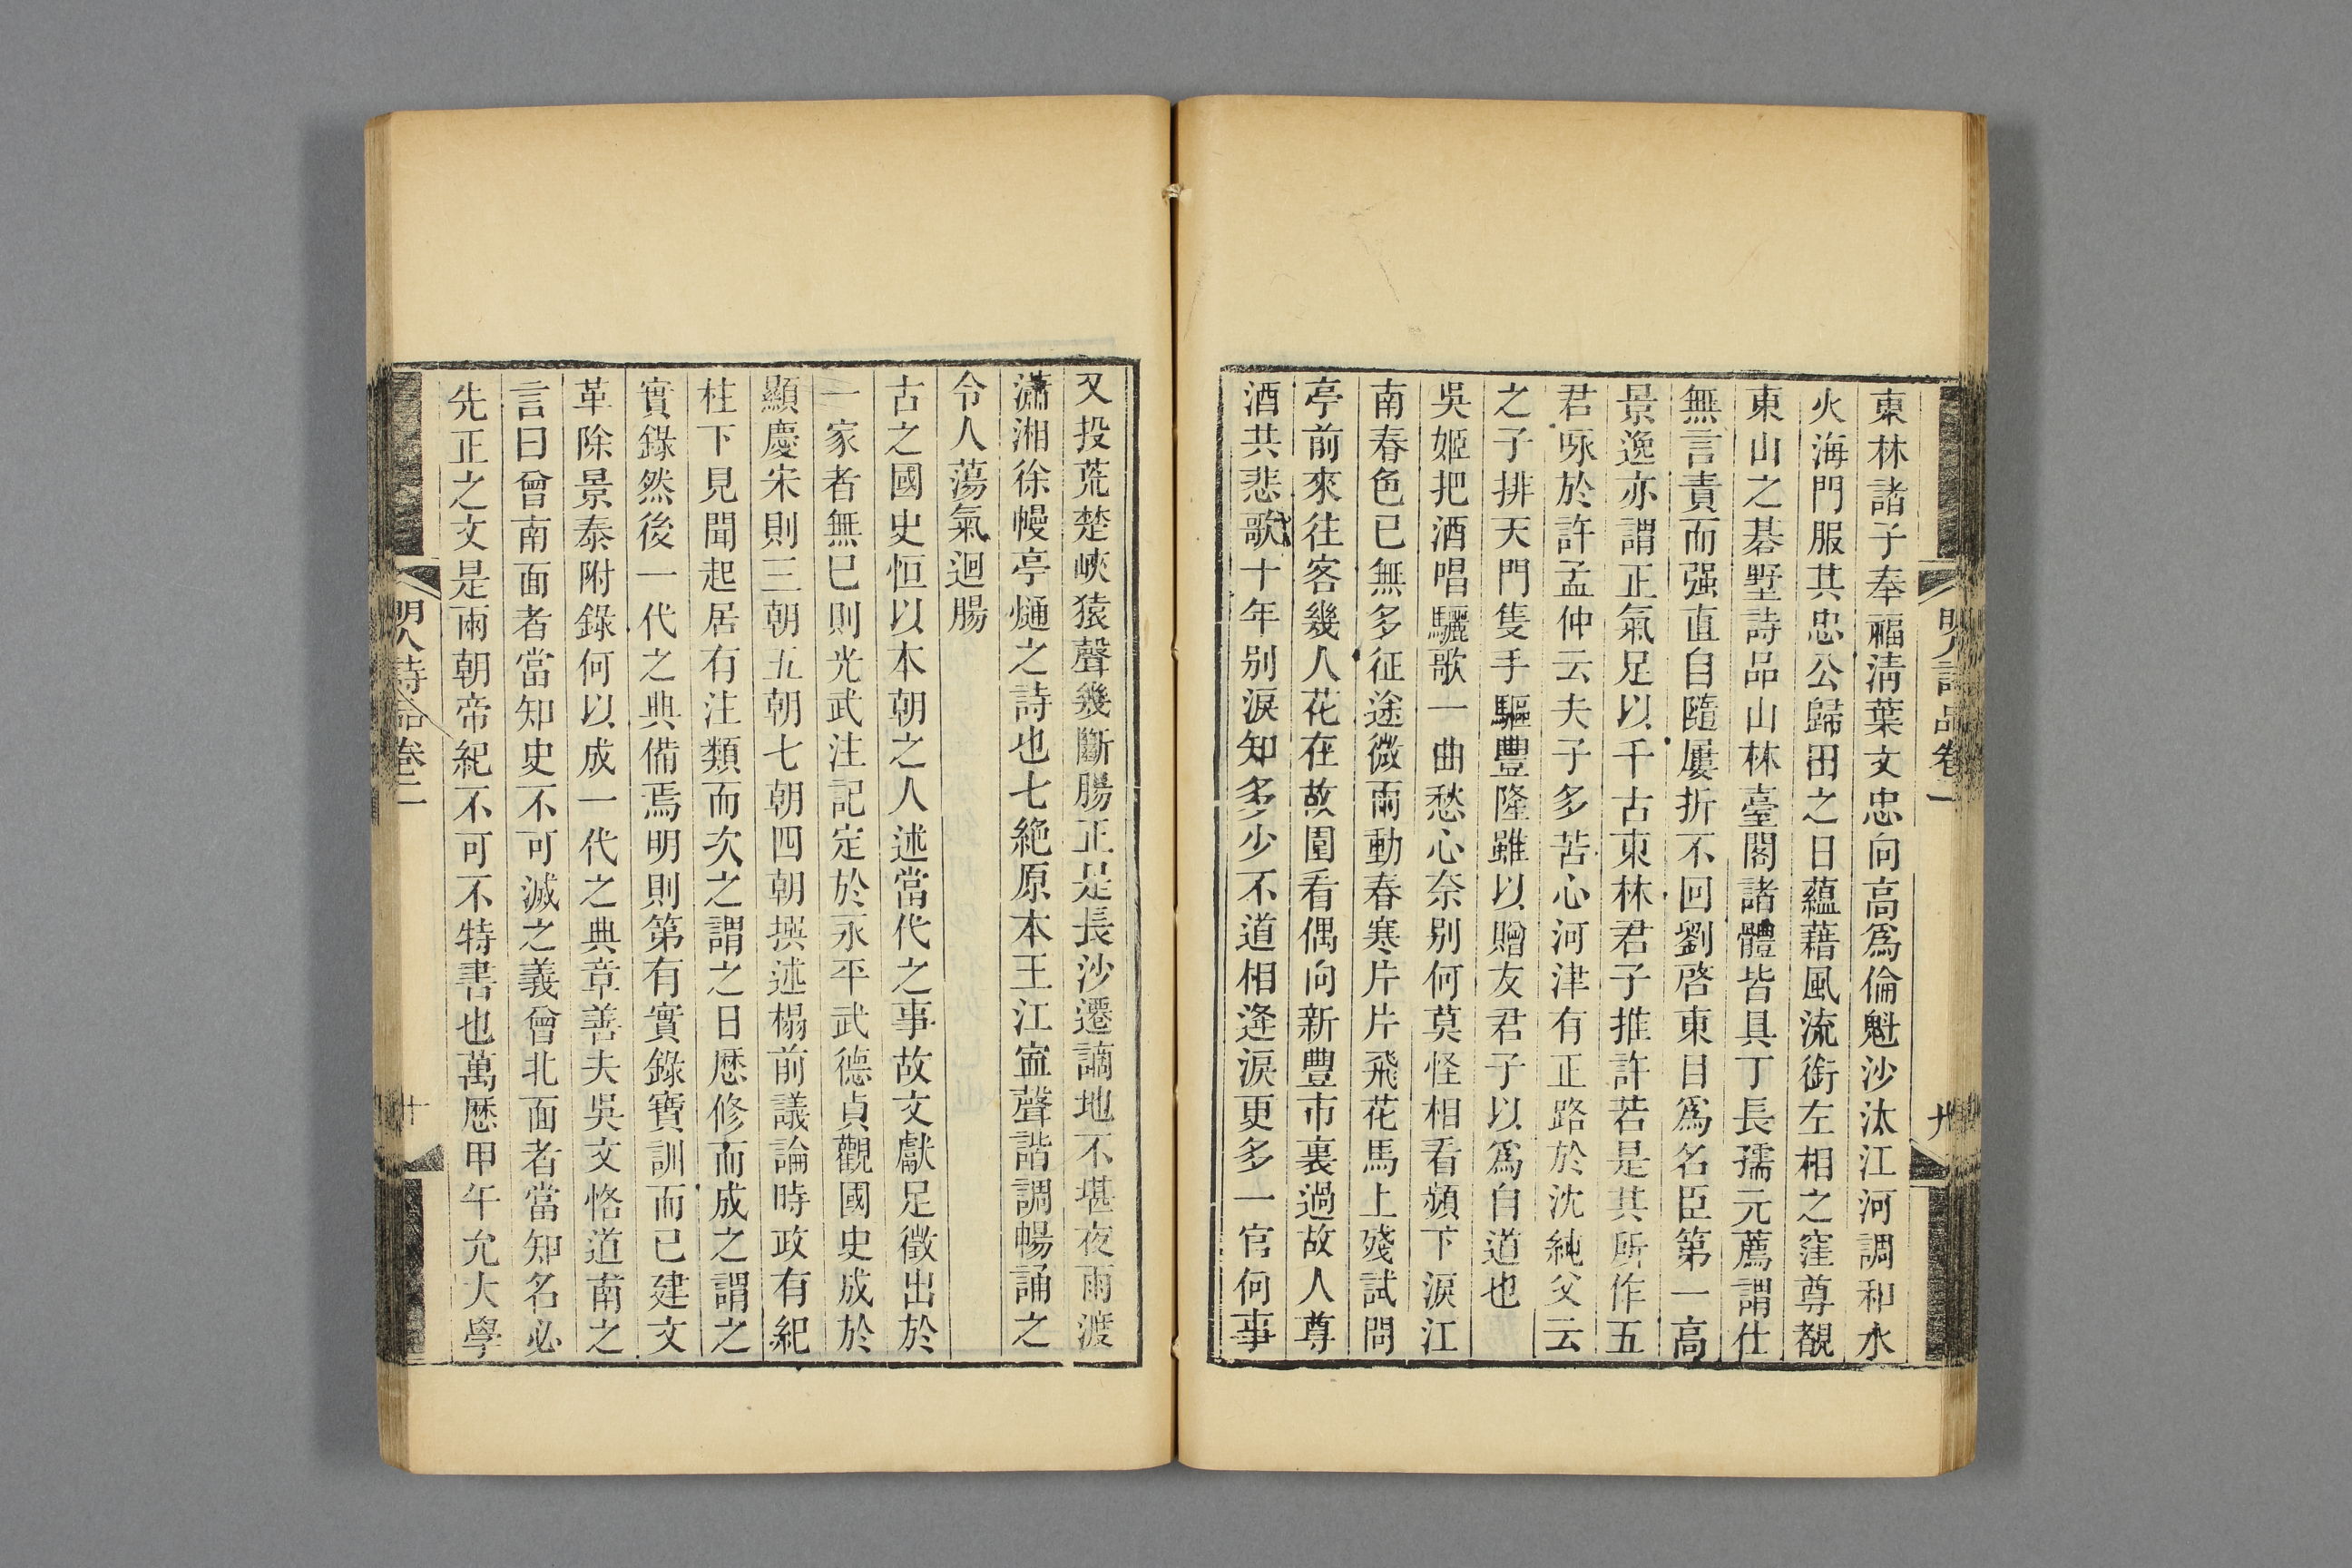 明人詩品卷二
九
東林諸子奉福淸葉文忠向高爲倫魁沙汰江河調和水
火海門服其忠公歸田之日蘊藉風流銜左相之窪尊覩
東山之碁墅詩品山林臺閣諸體皆具丁長孺元薦謂仕
無言責而强直自隨屢折不回劉啓東目爲名臣第一高
景逸亦謂正氣足以千古東林君子推許若是其所作五
君咏於許孟仲云夫子多苦心河津有正路於沈純父云
之子排天門隻手驅豐隆雖以贈友君子以爲自道也
吳姬把酒唱驪歌一曲愁心奈别何莫怪相看蘋下淚江
南春色已無多征途微雨動春寒片片飛花馬上殘試問
亭前來往客幾人花在故園看偶向新豐市裏過故人尊
酒共悲歌十年别淚知多少不道相逢淚更多一官何事
又投荒楚峽猿聲幾斷腸正是長沙遷謫地不堪夜雨渡
瀟湘徐幔亭熥之詩也七絶原本王江寍聲諧調暢誦之
令人蕩氣迴腸
古之國史恒以本朝之人述當代之事故文獻足徵出於
一家者無已則光武注記定於永平武德貞觀國史成於
顯慶宋則三朝五朝七朝四朝撰述榻前議論時政有紀
柱下見聞起居有注類而次之謂之日歷修而成之謂之
實錄然後一代之典備焉明則第有實錄寶訓而已建文
革除景泰附錄何以成一代之典章善夫吳文恪道南之
言曰曾南面者當知史不可滅之義曾北面者當知名必
先正之文是兩朝帝紀不可不特書也萬歷甲午允大學
明人詩品卷二
十